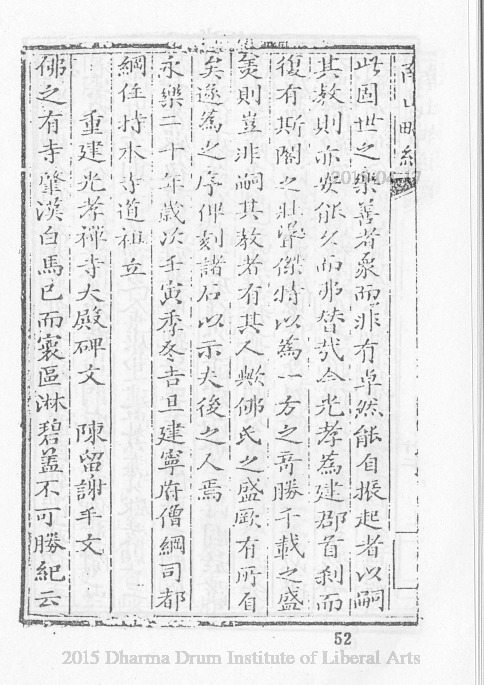 此固世之樂善者衆而非有卓然能自振起者以嗣
其教則亦安能久而弗替哉今光孝為建郡首刹而
復有斯閣之壯麗傑特以為一方之奇勝千載之盛
美則豈非嗣其教者有其人歟佛氏之盛歟有所自
矣遂為之序俾刻諸石以示夫後之人焉
永樂二十年歲次壬寅季冬吉旦建寧府僧綱司都
綱住持本寺道祖立
重建光孝禪寺大殿碑文 陳留謝 文
佛之有寺肇漢白馬已而寰區淋碧蓋不可勝紀云
52
2015 Dharma Drum Institute of Liberal Arts